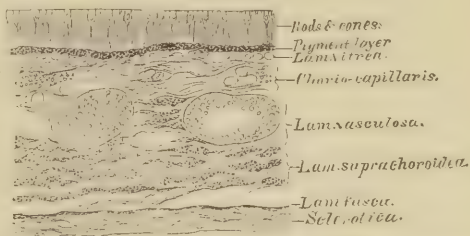 Rods & cones.
Pigment layer
Lam. vitrea.
Chorio-capillaris.
Lam. vasculosa.
Lam. suprachoroidea.
Lam. fusca.
Sclerotica.